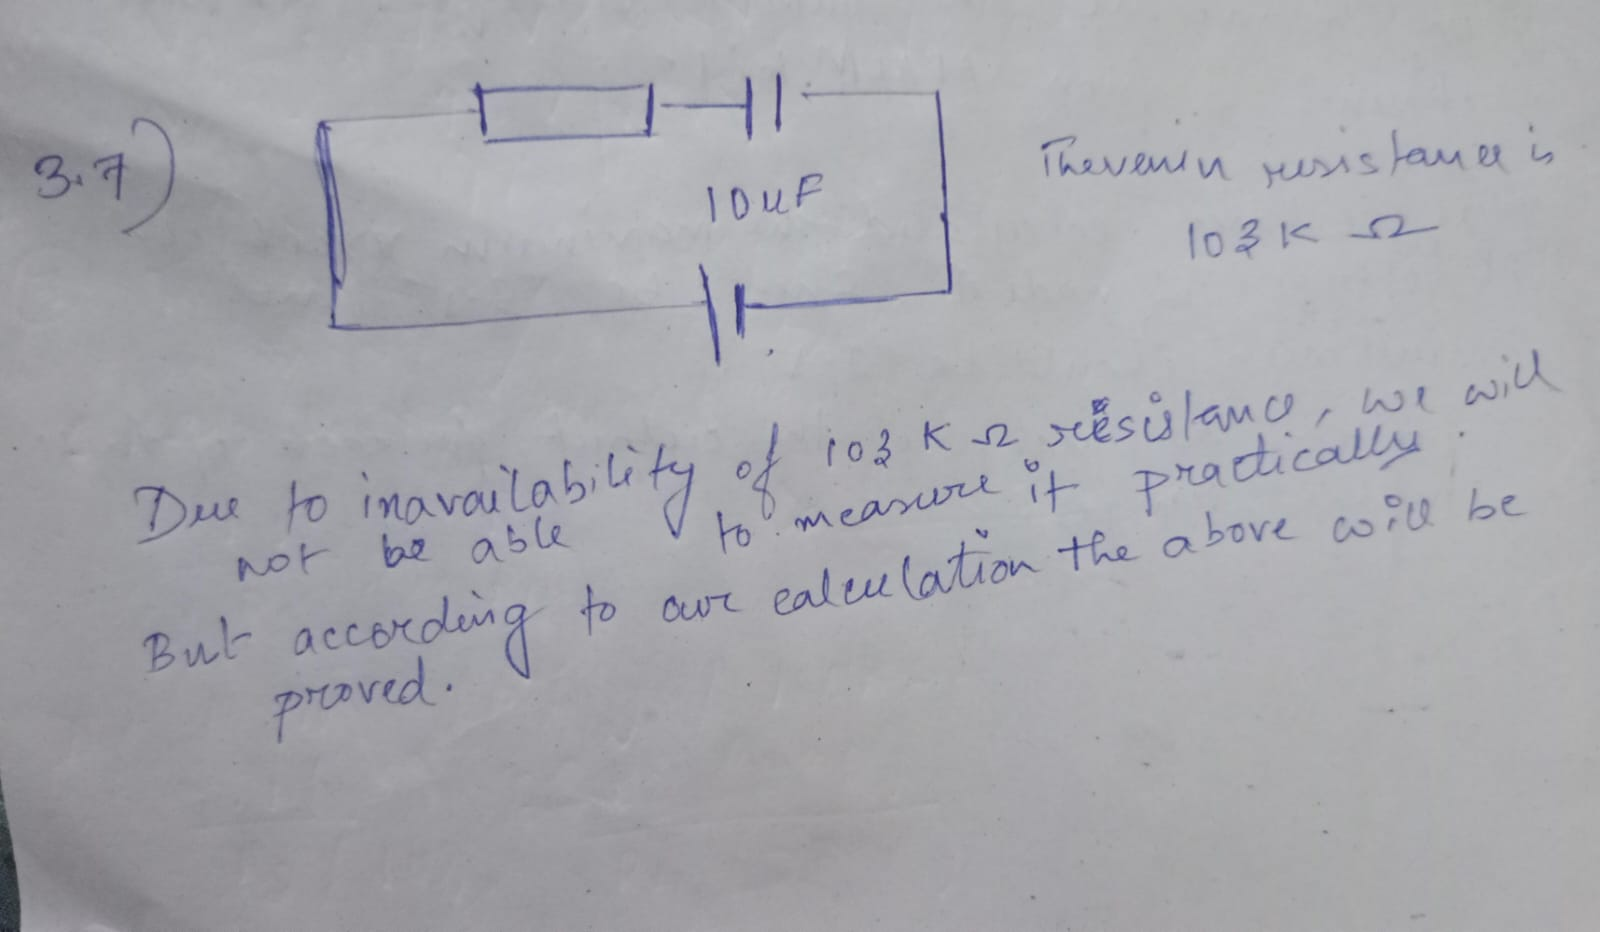 3.7)
10uF
Thevenin resistance is
103 K Ω
Due to inavailability of 103 K Ω resistance, we will
not be able to measure it practically.
But according to our calculation the above will be
proved.